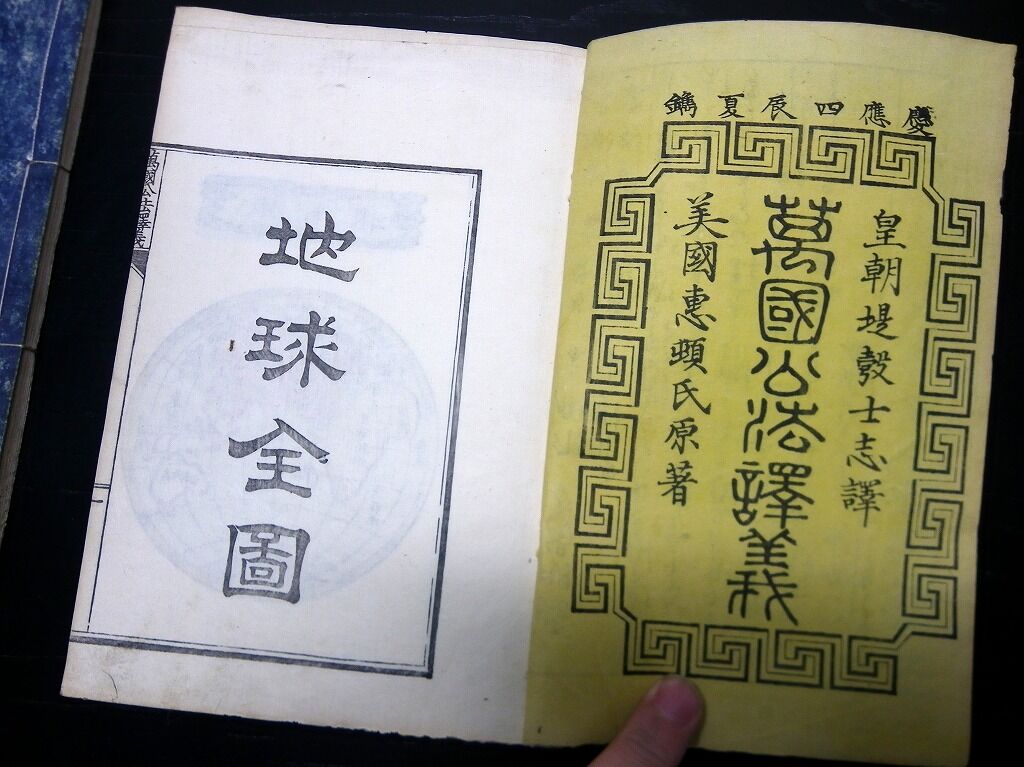 慶應四辰夏鐫
皇朝堤殼士志譯
萬國公法譯義
美國惠頓氏原著
地球全圖
萬國公法譯義